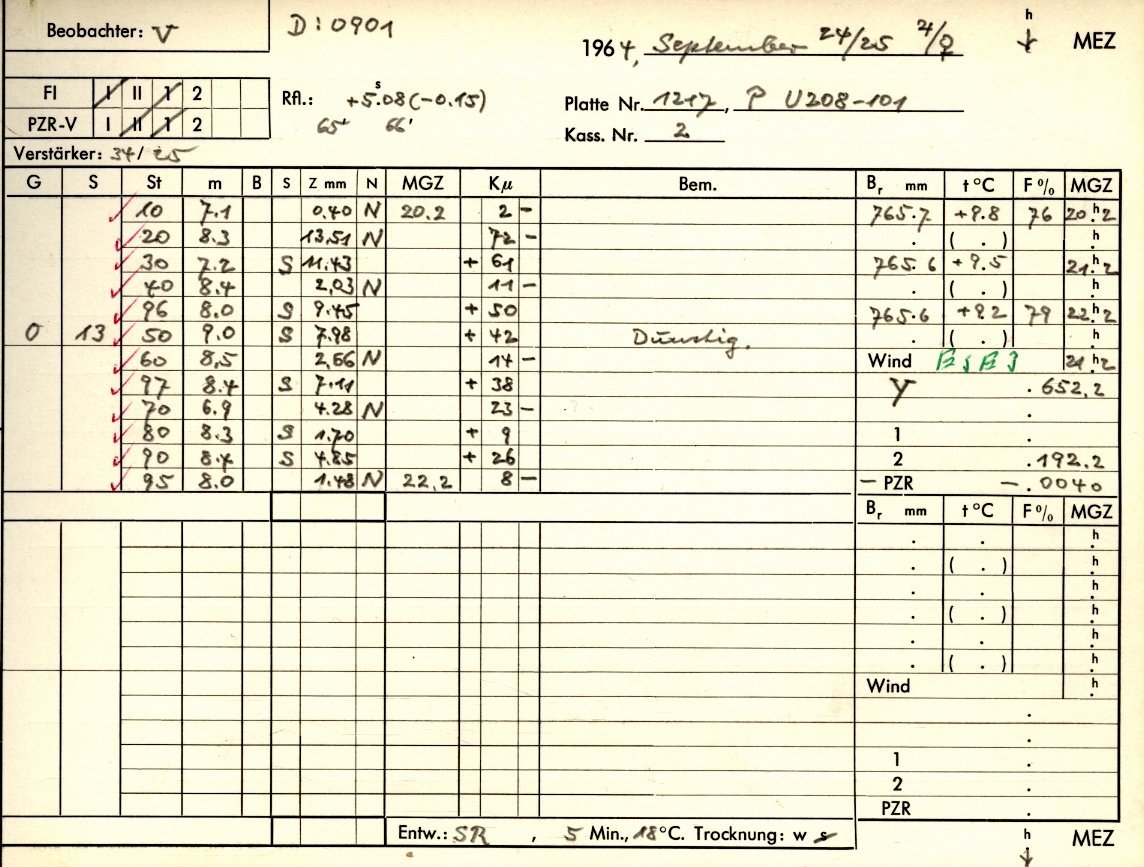 Beobachter: V
D: 0901
1964, September 24/25 ♃/♀
h
MEZ
FI I II 1 2
PZR-V I II 1 2
Rfl.: +5.08 (-0.15)
s
65' 66'
Platte Nr. 1217, P U208-101
Kass. Nr. 2
Verstärker: 34/25
G S St m B S Z mm N MGZ Kμ Bem. Br mm t°C F% MGZ
10 7.1 0.40 N 20.2 2 - 765.7 +9.8 76 20h.2
20 8.3 13.51 N 72 - . ( . ) h.
30 7.2 S 11.43 + 61 765.6 +9.5 21h.2
40 8.4 2.03 N 11 - . ( . ) h.
96 8.0 S 9.45 + 50 765.6 +9.2 79 22h.2
0 13 50 9.0 S 7.98 + 42 Dunstig. . ( . ) h.
60 8,5 2,66 N 14 - Wind 21h.2
97 8.4 S 7.11 + 38 Y .652,2
70 6.9 4.28 N 23 - .
80 8.3 S 1.70 + 9 1 .
90 8.4 S 4.85 + 26 2 .192.2
95 8.0 1.48 N 22.2 8 - - PZR -.0040
Br mm t°C F% MGZ
. . h.
. ( . ) h.
. . h.
. ( . ) h.
. . h.
. ( . ) h.
Wind h.
.
.
1 .
2 .
PZR .
Entw.: SR , 5 Min., 18°C. Trocknung: w s
h
MEZ